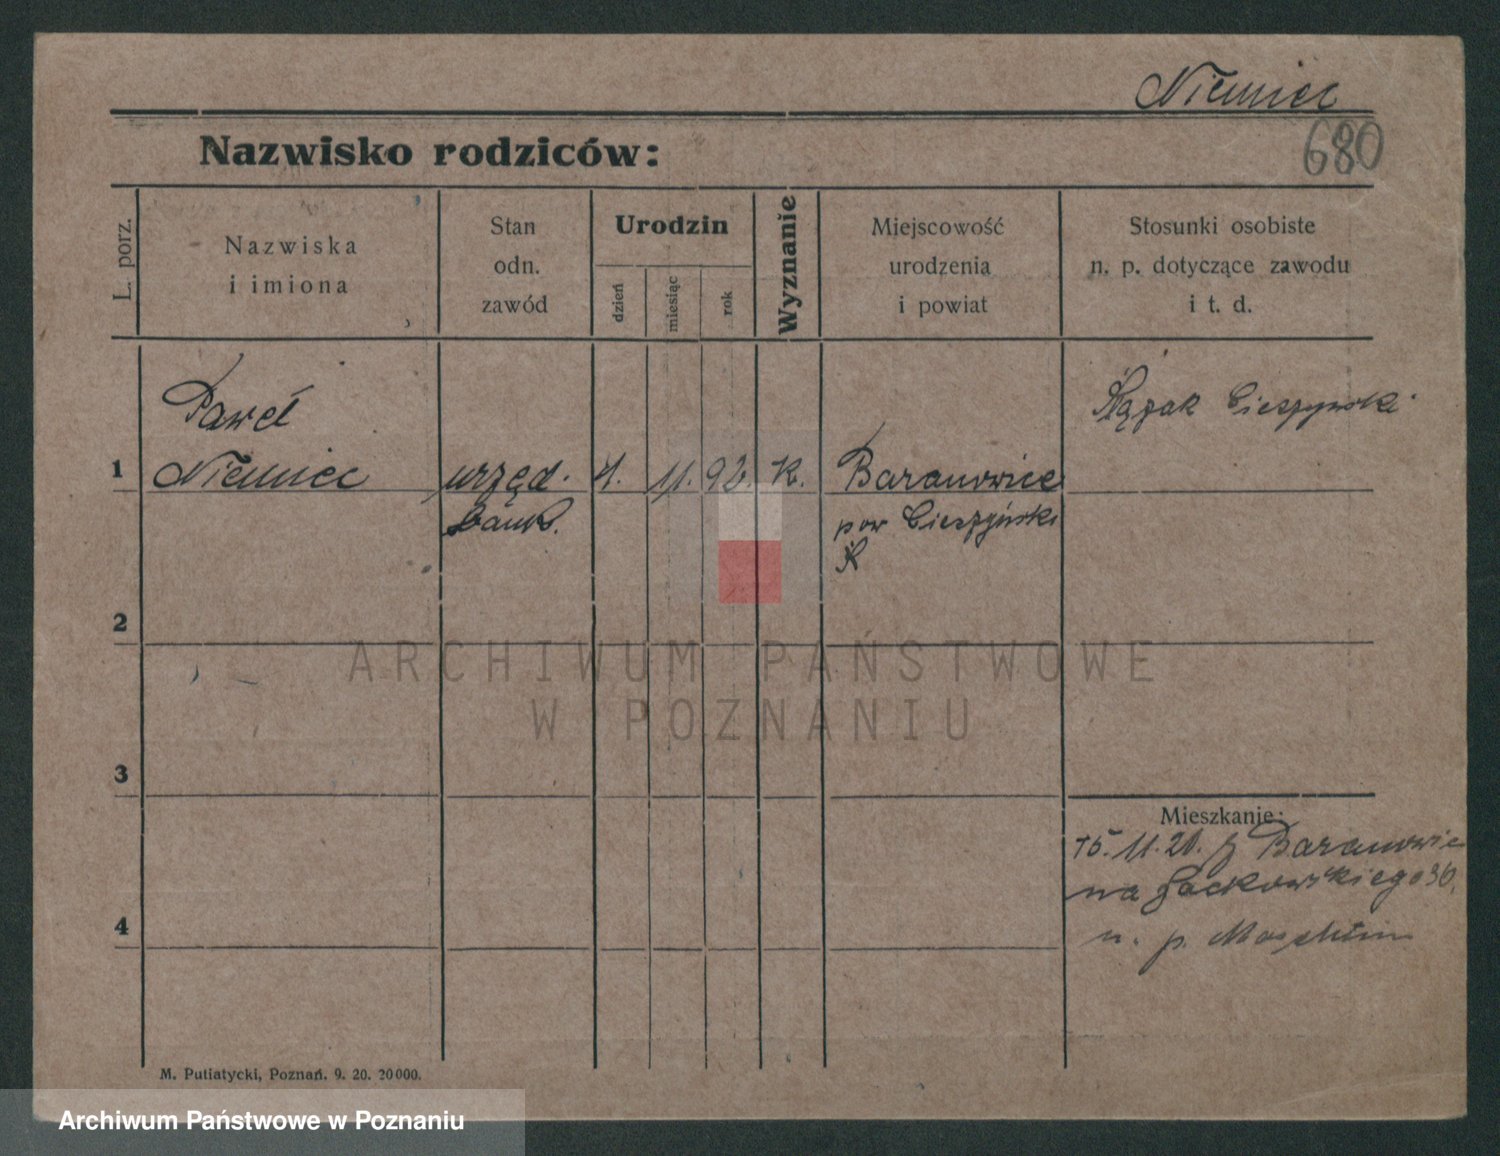 Niemiec
680
Nazwisko rodziców:
L. porz.
Nazwiska
i imiona
Stan
odn.
zawód
Urodzin
dzień
miesiąc
rok
Wyznanie
Miejscowość
urodzenia
i powiat
Stosunki osobiste
n. p. dotyczące zawodu
i t. d.
Paweł
Ślązak Cieszyński
1 Niemiec urzęd. 4. 11. 92. k. Baranowice
bank. pow Cieszyński
2
ARCHIWUM PAŃSTWOWE
W POZNANIU
3
Mieszkanie:
15. 11. 20. z Baranowic
na Jackowskiego 36,
4
u. p.
M. Putiatycki, Poznań. 9. 20. 20000.
Archiwum Państwowe w Poznaniu